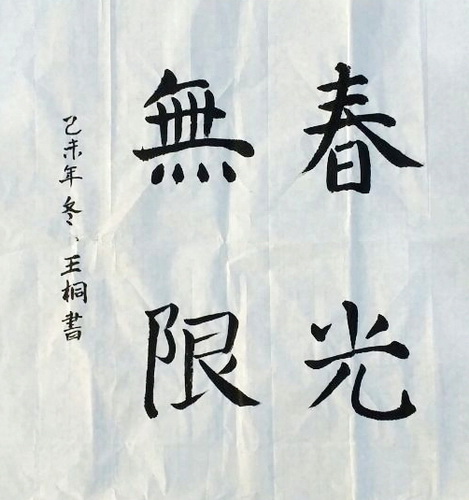 春光
無限
己未年冬、王桐書